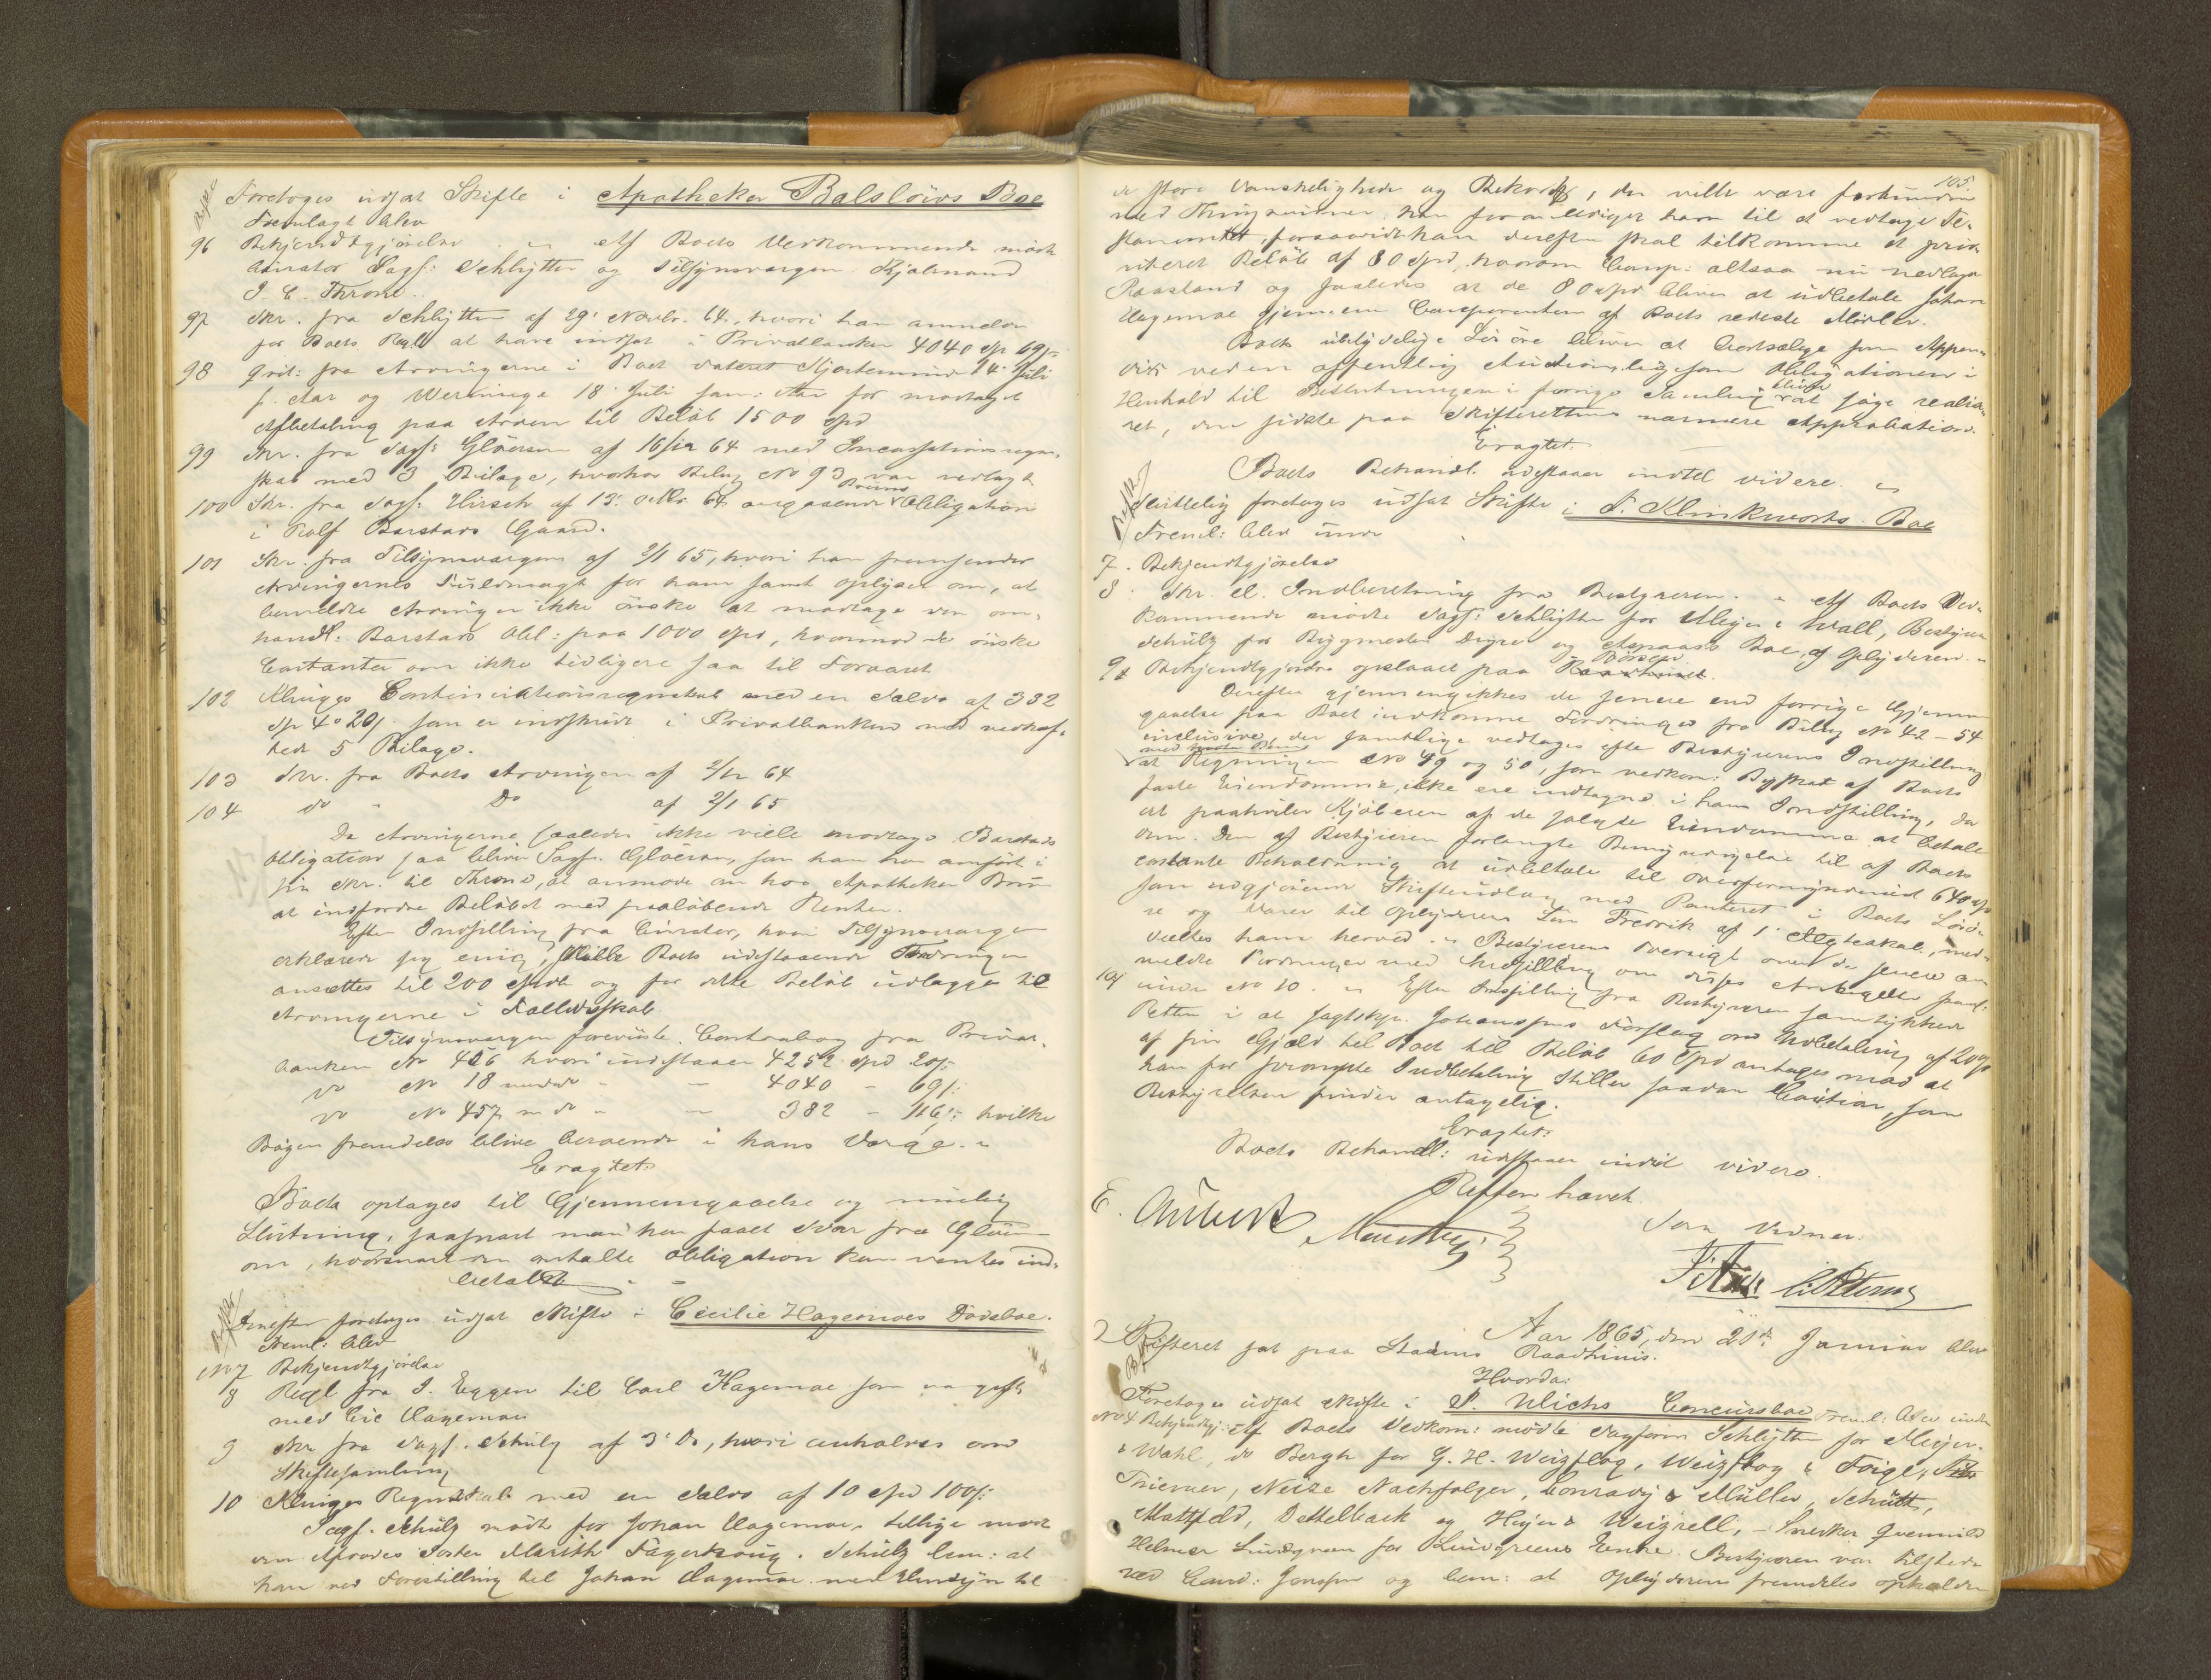 Foretoges udsat Skifte i Apotheker Balsløws Boe
Fremlagt blev
96 Bekjendtgjørelse. – Af Boets Vedkommende mødte
Curator Sagf: Schlytter og Tilsynsvergen Kjøbmand
J. C. Throne.
97 Skr. fra Schlytter af 29. Novbr. 64, hvori han anmelder
for Boets Regn. at have indsat i Privatbanken 4040 Sp 69 s
98 Qvit: fra Arvingerne i Boet dateret Kjerteminde 14 Juli
f. Aar og Werninge 18 Juli sam: Aar for modtaget
Afbetaling paa Arven til Beløb 1500 Spd
99 Skr. fra Sagf: Gløersen af 16/12 64 med Incassationsregn-
skab med 3 Bilage, hvorhos Bilag No 93 var vedlagt
100 Skr. fra Sagf: Hirsch af 13. Octbr 64 angaaende Bruns Obligation
i Rolf Barstads Gaard.
101 Skr. fra Tilsynsvergen af 2/1 65, hvori han fremsender
Arvingernes Fuldmagt for ham samt oplyser om, at
bemeldte Arvinger ikke ønske at modtage den om-
handl: Barstads Obl: paa 1000 Spd, hvorimod de ønske
Contanter om ikke tidligere saa til Foraaret
102 Kluges Continuationsregnskab med en Saldo af 332
Sp 4 o 20 s. som er indskudt i Privatbanken med vedhæf-
tede 5 Bilage.
103 Skr. fra Boets Arvinger af 2/12 64
104 do " Do af 2/1 65
Da Arvingerne saaledes ikke ville modtage Barstads
Obligation saa bliver Sagf. Gløersen, som han har anført i
sin Skr. til Throne, at anmode om hos Apotheker Brun
at indfordre Beløbet med paaløbende Renter.
Efter Indstilling fra Curator, hvori Tilsynsvergen
erklærede sig enig, skulle Boets udestaaende Fordringer
ansættes til 200 Spdlr og for dette Beløb udlægges til
Arvingerne i Fælledsskab.
Tilsynsvergen foreviste Contrabog fra Privat-
banken No 426 hvori indestaaer 4252 Spd 20 s.
do No 18 – – 4040 – 69 s:
do No 457 m do – – 382 – 116 s: hvilke
Bøger fremdeles blive beroende i hans Værge. –
Eragtet:
Boet optages til Gjennemgaaelse og mulig
Slutning, saasnart man har faaet Svar fra Gløersen
om, hvorsnart den omtalte Obligation kan ventes ind-
betalt. –
Derefter foretoges udsat Skifte i Cecilie Hagemoes Dødsboe.
Freml: blev
No 7 Bekjendtgjørelse
8 Regl fra I. Eggen til Carl Hagemoe som var gift
med Cec Hagemoe
9 Skr fra Sagf. Schulz af 3 Ds, hvori anholdes om
Skiftesamling
10 Kluges Regnskab med en Saldo af 10 Spd 100 s:
Sagf. Schulz mødte for Johan Hagemoe, tillige mødte
den Afdødes Søster Marith Fagerhoug. Schulz bem: at
han ved Forestilling til Johan Hagemoe med Hensyn til
105.
de store Vanskeligheder og Bekostg, der ville være forbundne
med Thingsvidner, han formaaligen ham til at vedtage Te-
stamentet forsaavidt han derefter skal tilkomme et privi-
ligeret Beløb af 80 Spd, hvorom Comp: altsaa nu nedlagde
Paastand og saaledes at de 80 Spd bliver at udbetale Johan
Hagemoe gjennem Comparenten af Boets rede Midler.
Boets ubetydelige Løsøre bliver at bortsælge som Appen-
dix ved en offentlig Auction ligesom Obligationen i
Henhold til Beslutningen i forrige Samling bliver at søge realise-
ret, den sidste paa Skifterettens nærmere Approbation.
Eragtet:
Boets Behandl. udestaaer indtil videre. –
Endelig foretoges udsat Skifte i J. Klinkworts Boe
Freml: blev under
7. Bekjendtgjørelse
8. Skr. el. Indberetning fra Bestyreren. – Af Boets Ved-
kommende mødte Sagf: Schlytter for Meyer & Wall, Bestyrer
Schulz for Bygmester Digre og Aspaas's Boe, og Opbyderen. –
9. Bekjendtgjørelse opslaaet paa Børsen.
Derefter gjennemgikkes de senere end forrige Gjennem-
gaaelse paa Boet indkomne Fordringer fra Bilag No 42–54
inclusive, der samtlige vedtages efter Bestyrerens Indstilling
at Regningen No 49 og 50, som vedkom: Bygskat af Boets
faste Eiendomme, ikke ere indtagne i hans Indstilling, da
det paahviler Kjøberen af de solgte Eiendomme at betale
dem. Den af Bestyreren forlangte Bemyndigelse til af Boets
contante Beholdning at udbetale til Overformynderiet 640 Spd
som udgjørende Skifteudlæg med Panteret i Boets Løsø-
re og Varer til Opbyderens Søn Fredrik af 1. Ægteskab, med-
deeltes ham herved. – Bestyrerens Oversigt over de senere an-
meldte Fordringer med Indstilling om disses Antagelse freml:
under No 10. – Efter Indstilling fra Bestyreren samtykkede
Retten i at Jagtskpr. Johanssens Forslag om Udbetaling af 20 Sp
af sin Gjæld til Boet til Beløb 60 Spd antages mod at
han for prompte Indbetaling stiller saadan Caution, som
Bestyrelsen finder antagelig.
Eragtet:
Boets Behandl: udestaaer indtil videre.
Retten hævet.
E. Aubert
Som Vidner.
Aar 1865, den 20de Januar blev
Skifteret sat paa Stadens Raadhuus.
Hvorda:
Foretoges udsat Skifte i P. Ulichs Concursboe Freml: blev under
No 4 Bekjendtgj: – Af Boets Vedkom: mødte Sagfører Schlytter for Meyer
& Wahl, do Bergh for G. H. Weigflog, Weigflog & Foigt,
Triemer, Neize Nachfolger, Conrady & Müller, Schütt,
Mattfeld, Dettelback og Heyer & Weigrell, – Snedker Qvenild
Helmer Lundgreen for Lundgreens Enke. Bestyreren var tilstede
ved Cand: Jenssen og bem: at Opbyderen fremdeles opholder